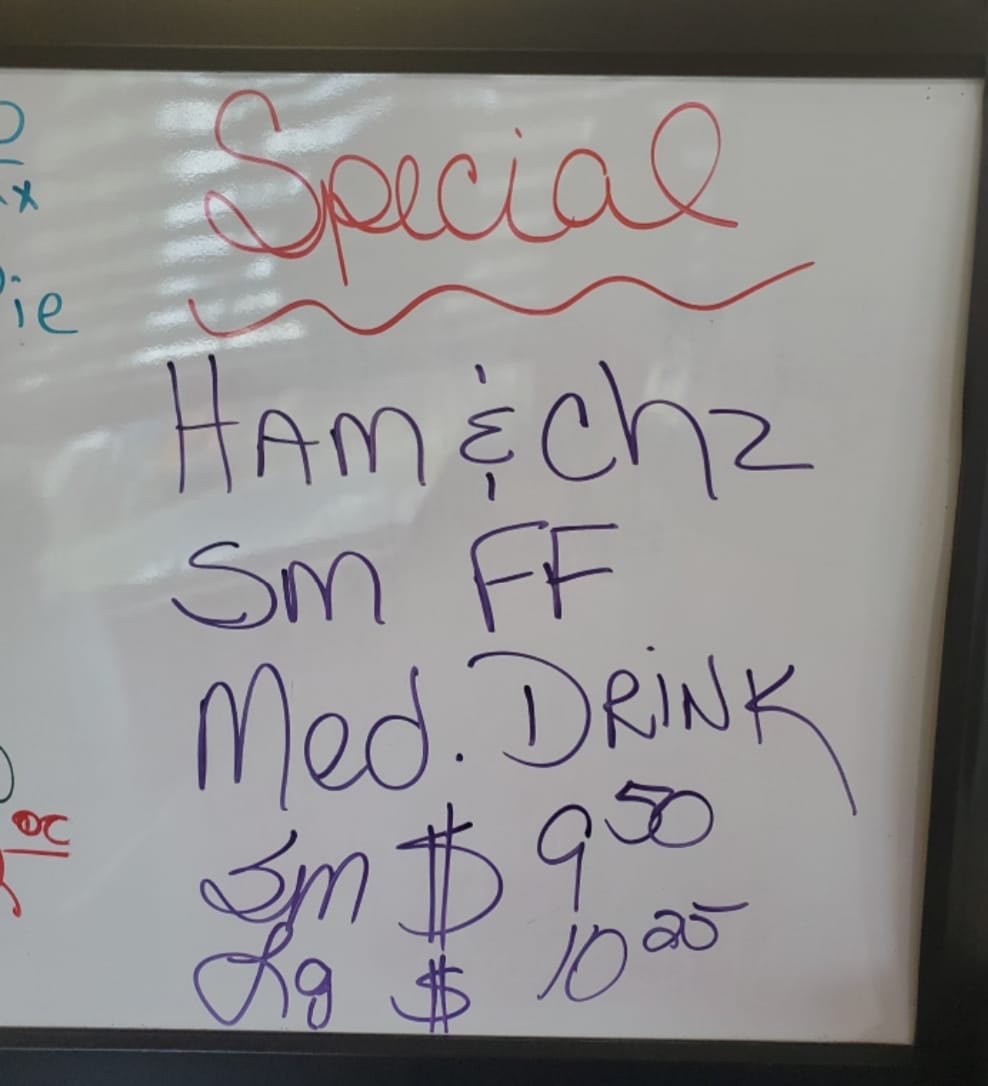 Special
HAM & Chz
Sm FF
Med. DRINK
Sm $ 9 50
Lg $ 10 25
ie